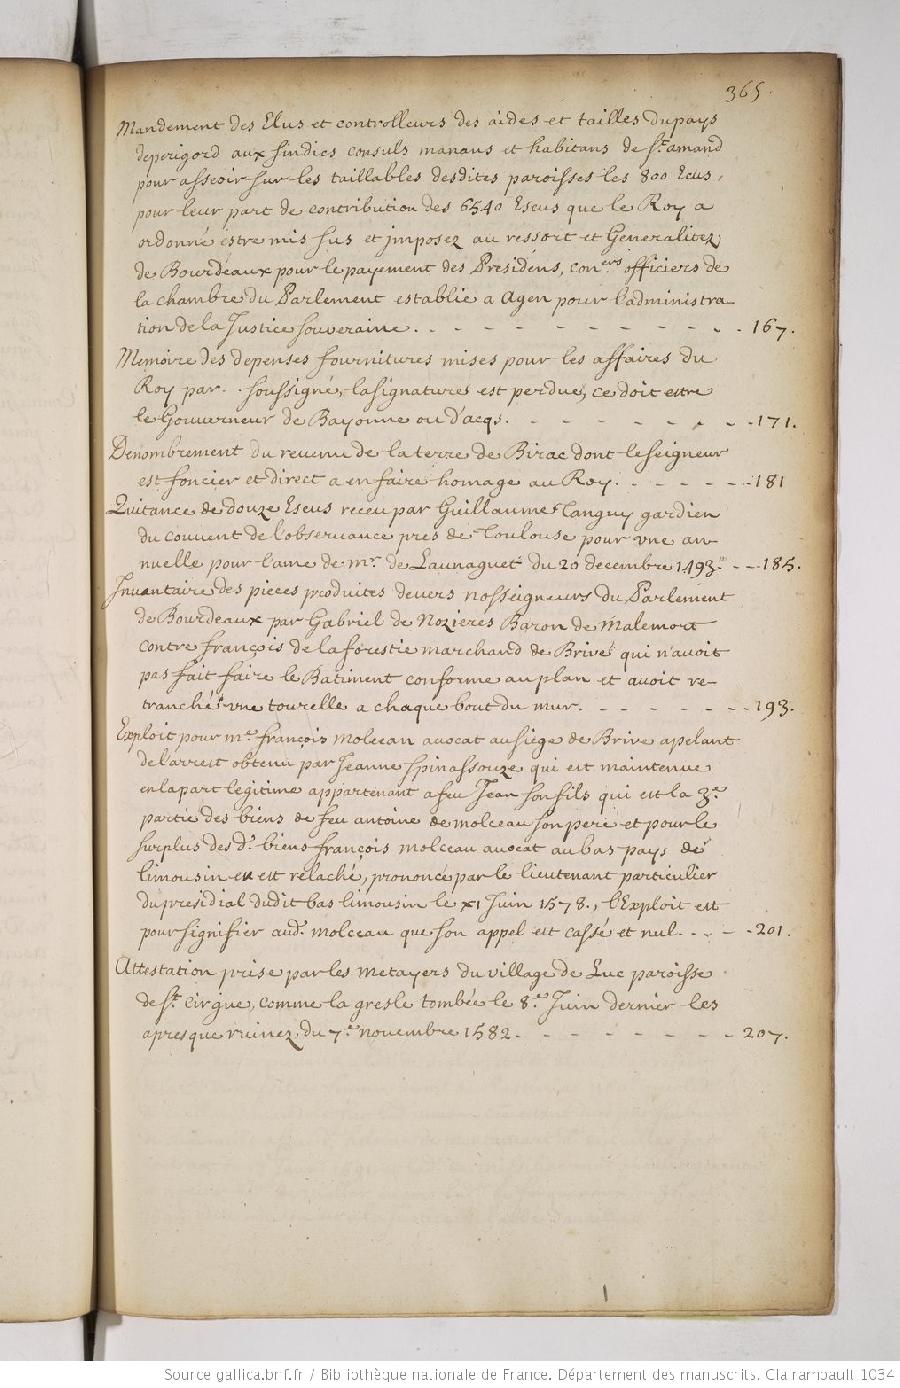 365.
Mandement des Elus et controlleurs des aides et tailles du pays
deperigord aux sindics consuls manans et habitans de St. amand
pour asseoir sur les taillables desdites paroisses les 800 Ecus,
pour leur part de contribution des 6540 Escus que le Roy a
ordonné estre mis sus et imposez au ressort et Generalitez
de Bourdeaux pour le payement des Presidens, coners. officiers de
la chambre du Parlement establie a Agen pour l'administra
tion de la Justice souveraine. - - - - - - - - - - - 167.
Memoire des depenses fournitures mises pour les affaires du
Roy par . . soussigné, la signatures est perdue, ce doit estre
le Gouverneur de Bayonne ou d'acqs. - - - - - - - - 171.
Denombrement du revenu de la terre de Birac dont le seigneur
est foncier et direct a en faire homage au Roy. - - - - - - 181
Quitance de douze Escus receu par Guillaume Tanguy gardien
du couvent de l'observance pres de Toulouse pour une an
nuelle pour l'ame de mr. de Launaguet du 20 decembre 1493. - - 185.
Inventaire des pieces produites devers nosseigneurs du Parlement
de Bourdeaux par Gabriel de Nozieres Baron de Malemort
contre françois de la forestie marchand de Brive qui n'avoit
pas fait faire le Batiment conforme au plan et avoit re-
tranché une tourelle a chaque bout du mur. - - - - - - - 193.
Exploit pour me. françois molceau avocat au siege de Brive apelant
de l'arrest obtenu par Jeanne Spinassouze qui est maintenue
en la part legitime appartenant a feu Jean son fils qui est la 3e.
partie des biens de feu antoine de molceau son pere et pour le
surplus des d. biens françois molceau avocat au bas pays de
limousin en est relaché, prononcé par le lieutenant particulier
du presidial dudit bas limousin le XI Juin 1578., l'Exploit est
pour signifier aud. molceau que son appel est cassé et nul. - - - 201.
Attestation prise par les metayers du village de Luc paroisse
de St. cirgue, comme la gresle tombée le 8e. Juin dernier les
a presque ruinez, du 7e. novembre 1582. - - - - - - - - 207.
Source gallica.bnf.fr / Bibliothèque nationale de France. Département des manuscrits. Clairambault 1034